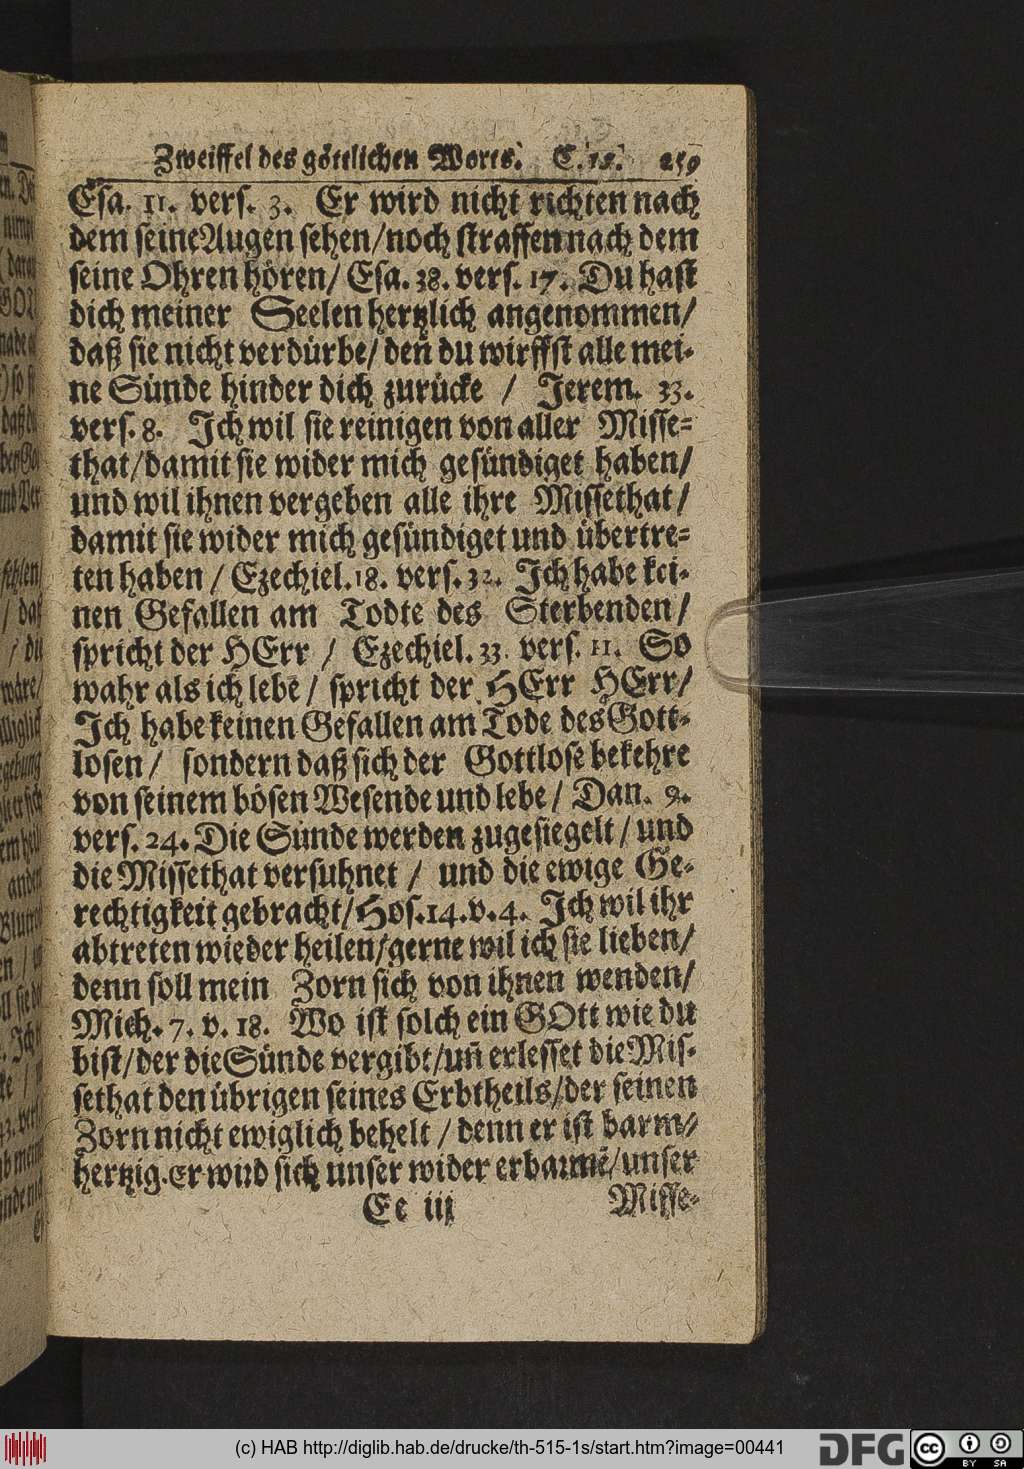 Zweiffel des göttlichen Worts. C. 18. 259
Esa. 11. vers. 3. Er wird nicht richten nach
dem seine Augen sehen/noch straffen nach dem
seine Ohren hören/ Esa. 38. vers. 17. Du hast
dich meiner Seelen hertzlich angenommen/
daß sie nicht verdürbe/ deñ du wirffst alle mei-
ne Sünde hinder dich zurücke / Jerem. 33.
vers. 8. Ich wil sie reinigen von aller Misse-
that/damit sie wider mich gesündiget haben/
und wil ihnen vergeben alle ihre Missethat/
damit sie wider mich gesündiget und übertre-
ten haben / Ezechiel. 18. vers. 32. Ich habe kei-
nen Gefallen am Todte des Sterbenden/
spricht der HErr / Ezechiel. 33. vers. 11. So
wahr als ich lebe / spricht der HErr HErr/
Ich habe keinen Gefallen am Tode des Gott-
losen / sondern daß sich der Gottlose bekehre
von seinem bösen Wesende und lebe / Dan. 9.
vers. 24. Die Sünde werden zugesiegelt / und
die Missethat versuhnet / und die ewige Ge-
rechtigkeit gebracht/Hos. 14. v. 4. Ich wil ihr
abtreten wieder heilen/gerne wil ich sie lieben/
denn soll mein Zorn sich von ihnen wenden/
Mich. 7. v. 18. Wo ist solch ein GOtt wie du
bist/der die Sünde vergibt/uñ erlesset die Mis-
sethat den übrigen seines Erbtheils/der seinen
Zorn nicht ewiglich behelt / denn er ist barm-
hertzig. Er wird sich unser wider erbarmē/unser
Ee iij Misse-
(c) HAB http://diglib.hab.de/drucke/th-515-1s/start.htm?image=00441
DFG
cc BY SA